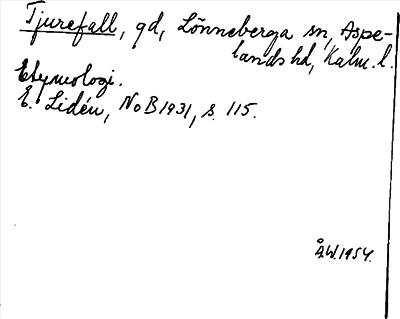 Tjurefall, gd, Lönneberga sn, Aspe-
lands hd, Kalm. l.
Etymologi.
E. Lidén, NoB 1931, s. 115.
Å.W. 1954.